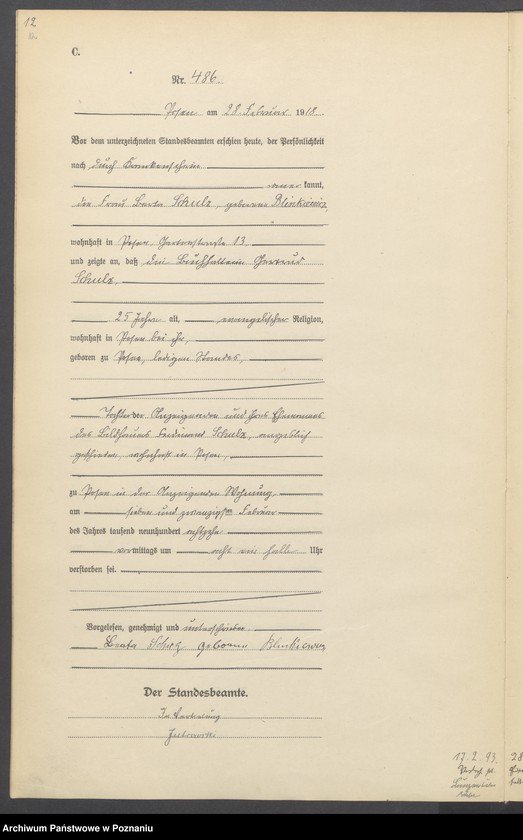 12
C.
Nr. 486.
Posen am 28. Februar 1918.
Vor dem unterzeichneten Standesbeamten erschien heute, der Persönlichkeit
nach durch
kannt,
die Frau Berta Schulz, geborene Blinkiewicz,
wohnhaft in Posen, Gartenstraße 13,
und zeigte an, daß die Buchhalterin Gertrud
Schulz,
25 Jahre alt, evangelischer Religion,
wohnhaft in Posen bei ihr,
geboren zu Posen, ledigen Standes,
Tochter der Anzeigenden und ihres Ehemannes
des Bildhauers Ferdinand Schulz, angeblich
geschieden, wohnhaft in Posen,
zu Posen in der Anzeigenden Wohnung,
am sieben und zwanzigsten Februar
des Jahres tausend neunhundert achtzehn
vormittags um acht ein halb Uhr
verstorben sei.
Vorgelesen, genehmigt und unterschrieben
Berta Schulz geborene
Der Standesbeamte.
In Vertretung
17.2.93.
28
Archiwum Państwowe w Poznaniu